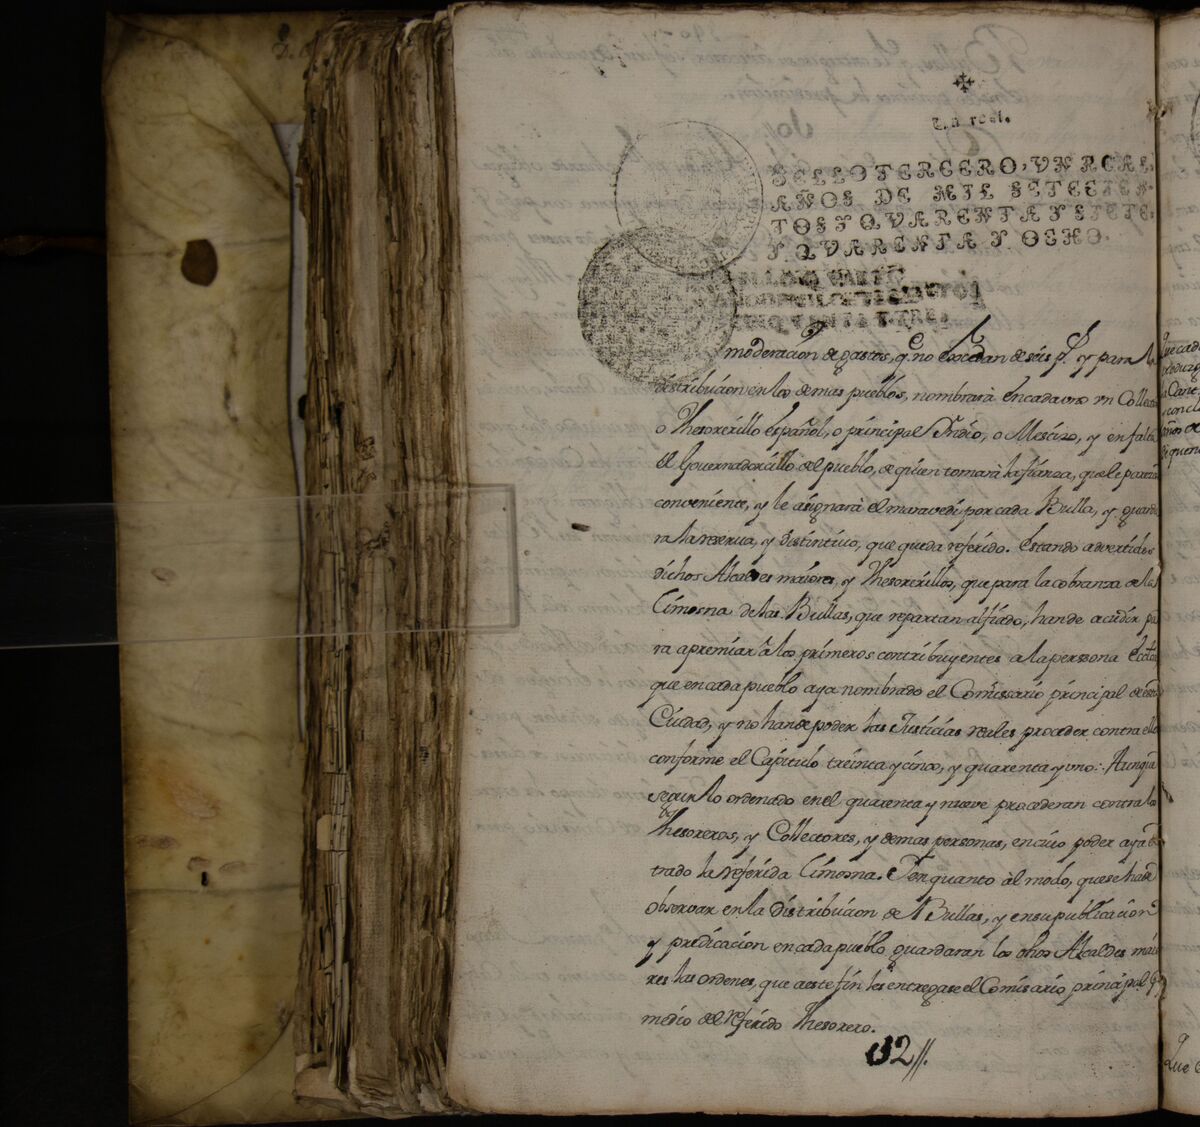 Un real.
SELLO TERCERO, VN REAL,
AÑOS DE MIL SETECIEN-
TOS Y QVARENTA Y SIETE,
Y QVARENTA Y OCHO.
moderacion de gastos, q.e no excedan de seis p.s y para la
distribucion en los demas pueblos, nombrarà en cada uno vn Collector
o Thesorerillo español, o principal Indio, o Mestizo, y en falta
el Governadorcillo del pueblo, de quien tomarà la fianza, que le parecie
conveniente, y le asignarà el maravedi por cada Bulla, y guarda
ra la reserva, y distintivo, que queda referido. Estando advertidos
dichos Alcaldes maiores, y Thesorerillos, que para la cobranza de la
Limosna de las Bullas, que repartan al fiado, han de acudir pa
ra apremiar à los primeros contribuyentes a la persona Ecc.ca
que en cada pueblo aya nombrado el Comissario principal de esta
Ciudad, y no han de poder las Justicias reales proceder contra ello
conforme el Capitulo treinta y cinco, y quarenta y uno: Aunque
segun lo ordenado en el quarenta y nueve procederan contra lo
Thesoreros, y Collectores, y demas personas, en cuio poder aya
trado la referida Limosna. Y en quanto àl modo, que se ha de
observar en la distribucion de Bullas, y en su publicacion
y predicacion en cada pueblo guardaran los dhos Alcaldes maio
res las ordenes, que a este fin les entregase el Comisario principal p.r
medio del referido Thesorero.
32//.